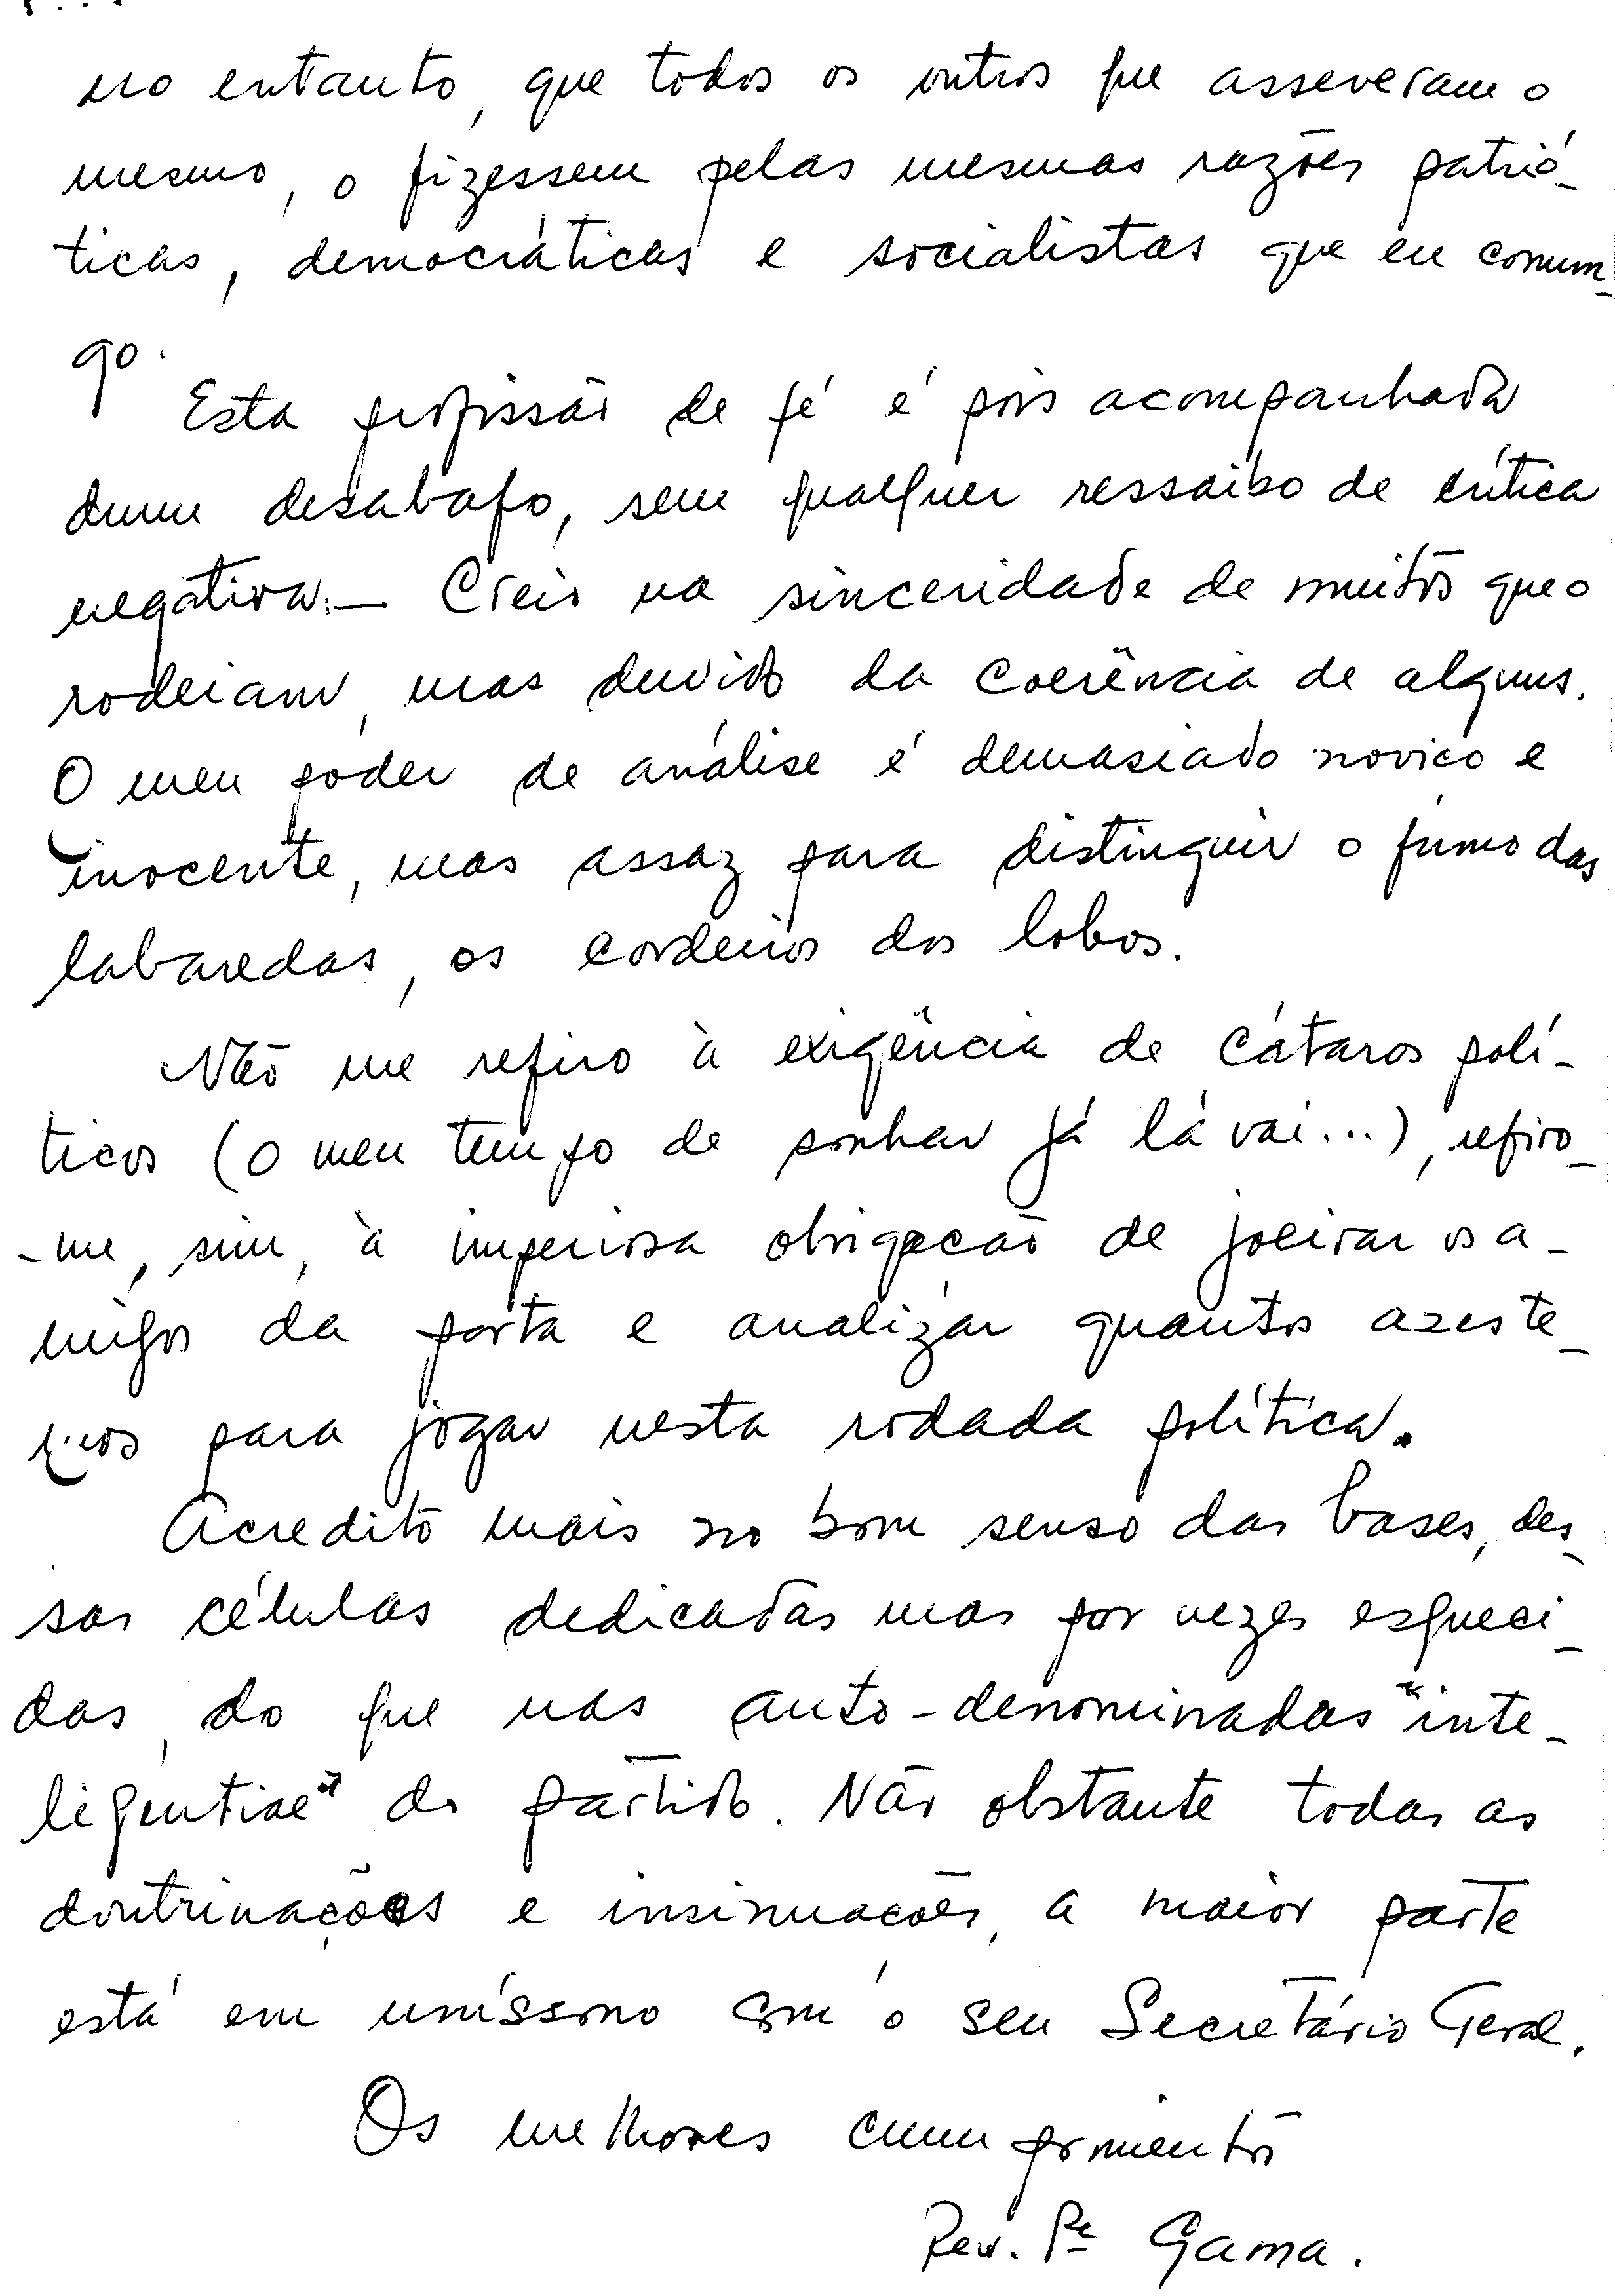 no entanto, que todos os outros que asseveram o
mesmo, o fizessem pelas mesmas razões patrió-
ticas, democráticas e socialistas que eu comun-
go.
Esta profissão de fé é pois acompanhada
dum desabafo, sem qualquer ressaibo de crítica
negativa. — Creio na sinceridade de muitos que o
rodeiam, mas duvido da coerência de alguns.
O meu poder de análise é demasiado noviço e
inocente, mas assaz para distinguir o fumo das
labaredas, os cordeiros dos lobos.
Não me refiro à exigência de cátaros polí-
ticos (o meu tempo de sonhar já lá vai...), refiro-
-me, sim, à imperiosa obrigação de joeirar os a-
migos da porta e analizar quantos azes te-
mos para jogar nesta rodada política.
Acredito mais no bom senso das bases, des-
sas células dedicadas mas por vezes esqueci-
das, do que nas auto-denominadas "inte-
ligentiae" do partido. Não obstante todas as
doutrinações e insinuações, a maior parte
está em uníssono com o seu Secretário Geral.
Os melhores cumprimentos
Rev. Pe Gama.